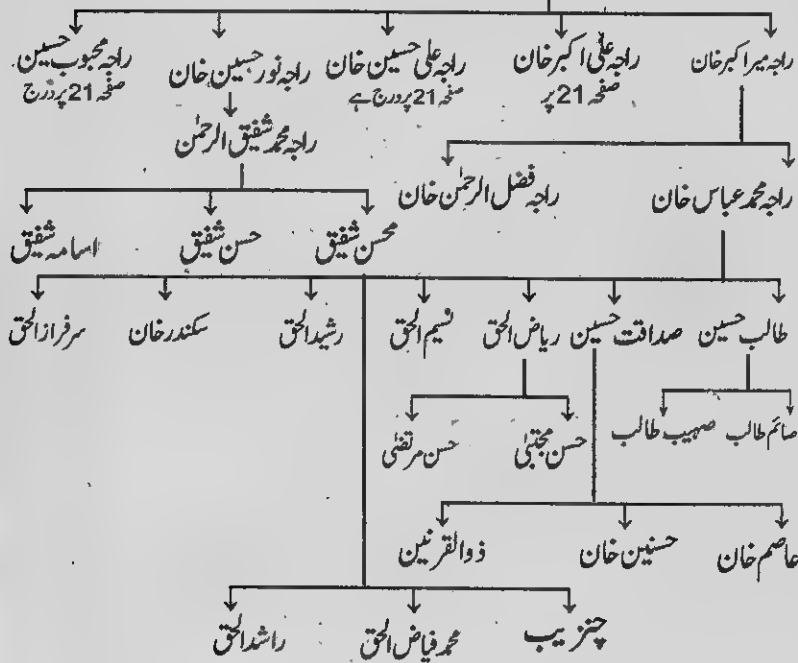 راجہ میر اکبر خان راجہ علی اکبر خان راجہ علی حسین خان راجہ نور حسین خان راجہ محبوب حسین
صفحہ 21 پر صفحہ 21 پر درج ہے صفحہ 21 پر درج
راجہ محمد شفیق الرحمٰن
راجہ محمد عباس خان راجہ فضل الرحمٰن خان
محسن شفیق حسن شفیق اسامہ شفیق
طالب حسین صداقت حسین ریاض الحق نسیم الحق رشید الحق سکندر خان سرفراز الحق
صائم طالب صہیب طالب حسن مجتبیٰ حسن مرتضیٰ
عاصم خان حسنین خان ذوالقرنین
چنزیب محمد فیاض الحق راشد الحق